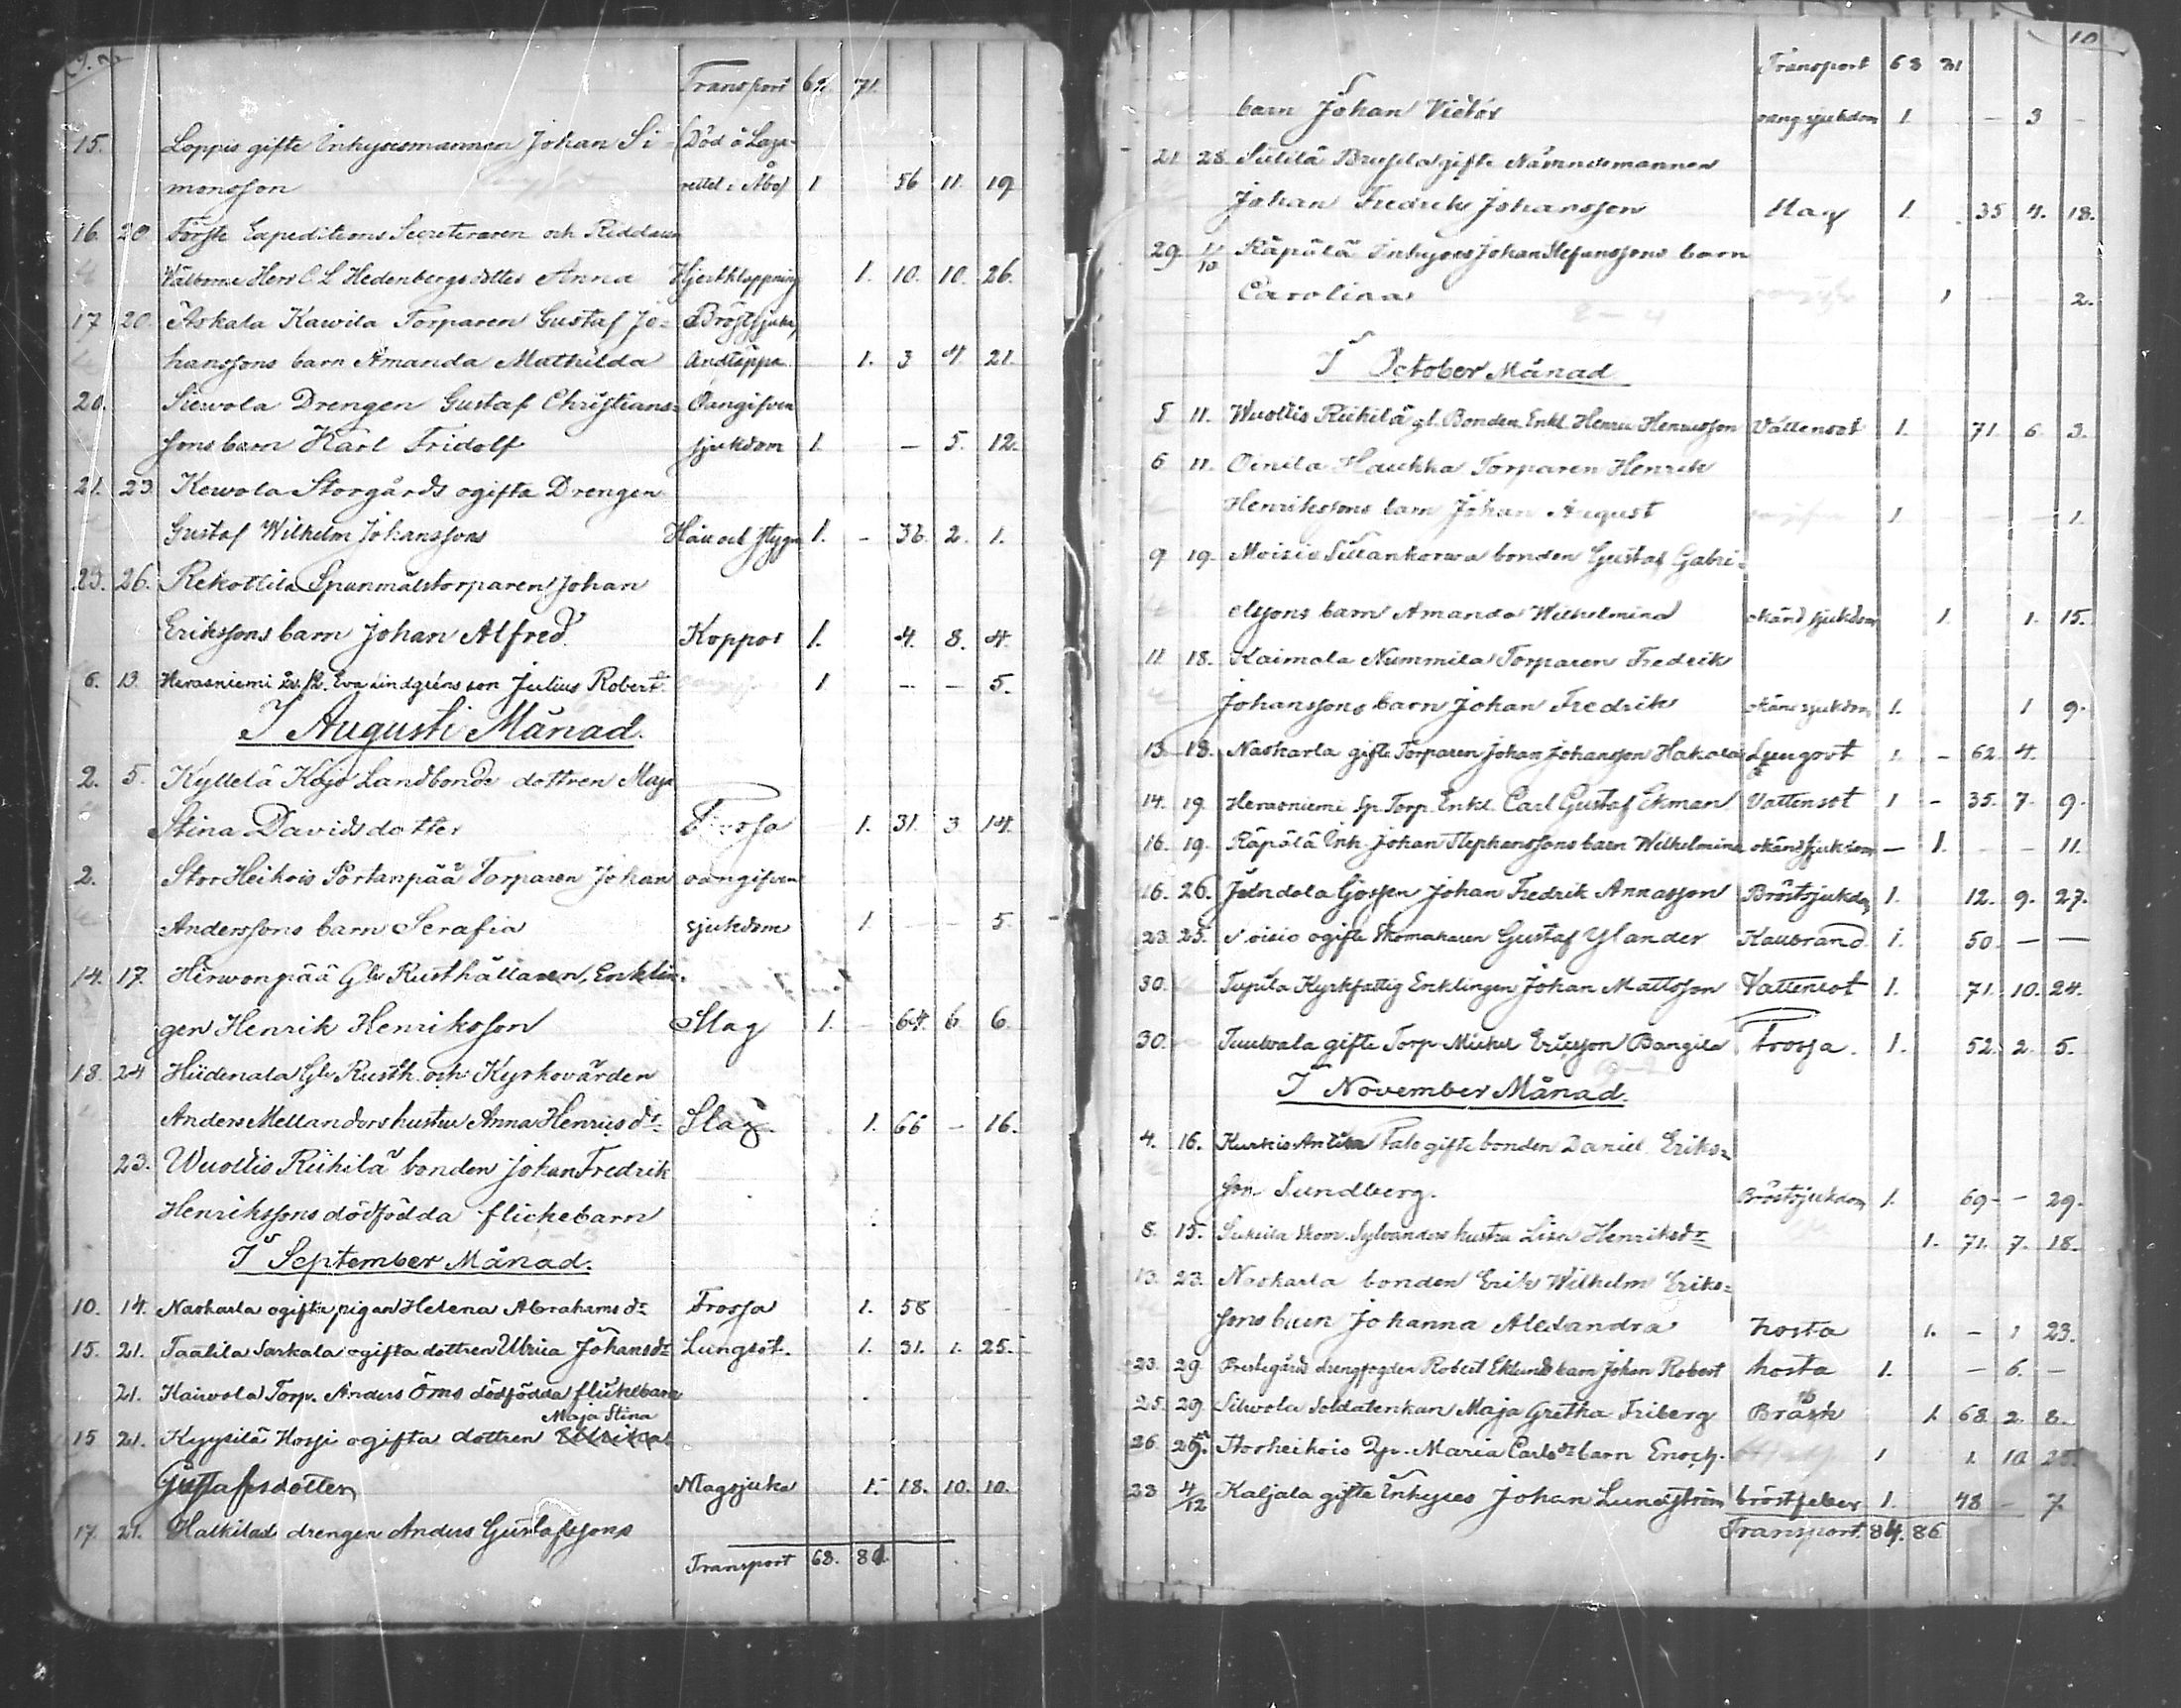 Transport 62. 71.
15. Loppis gifte Inhysesmannen Johan Si- (Död å Laza-
monsson rettet i Åbo) 1 56 11. 19
16. 20 Förste Expeditions Secreteraren och Riddaren
Wälborne Herr C. L. Hedenbergs dotter Anna Hjertklappning 1. 10. 10. 26.
17 20. Äskala Kawila Torparen Gustaf Jo- Bröstsjuka,
hanssons barn Amanda Mathilda Andtäppa 1. 3 4. 21.
20. Siewola Drengen Gustaf Christians- Oangifven
sons barn Karl Fridolf sjukdom 1. — 5. 12.
21. 23. Kewola Storgårds ogifta Drengen
Gustaf Wilhelm Johanssons Håll och stygn 1. - 36. 2. 1.
23. 26. Rekottila Spanmålstorparen Johan
Erikssons barn Johan Alfred. Koppor 1. 4. 8. 4.
6. 13. Herasniemi Eva Lindgréns son Julius Robert. 1. — — 5.
I Augusti Månad.
2. 5. Kyllelä Kojo Landbonde dottren Maja
Stina Davidsdotter Frossa 1. 31. 3 14.
2. StorHeikois Sortanpää Torparen Johan oangifven
Anderssons barn Serafia sjukdom 1. — — 5.
14. 17. Hirwonpää Gle Rusthållaren, Enklin-
gen Henrik Henriksson Slag 1. 64. 6 6.
18. 24 Hiidenala Gle Rusth. och Kyrkovärden
Anders Mellandors hustru Anna Henricsdr Slag. 1. 66 — 16.
23. Wuoltis Riihilä bonden Johan Fredrik
Henrikssons dödfödda flickebarn
I September Månad.
10. 14. Naskarla ogifta pigan Helena Abrahamsdr Frossa 1. 58 -
15. 21. Taalila Sarkala ogifta dottren Ulrica Johansdr Lungsot. 1. 31. 1. 25.
21. Hairvola Torp. Anders Öms dödfödda flickebarn
Maja Stina
15 21. Kyysilä Hossi ogifta dottren
Gustafsdotter Magsjuka 1. 18. 10. 10.
17. 21. Halkilas drengen Anders Gustafssons
Transport 68. 81.
10
Transport 68 81
barn Johan Victor oang. sjukdom 1. — 3 -
21. 28. Sillilä Brusila gifte Nämndemannen
Johan Fredrik Johansson Slag 1. 35 4. 18.
29 1/10 Räpälä Inhyses Johan Stefanssons barn
Carolina 1 — 2.
I October Månad
5 11. Wuoltis Riihilä gl. Bonden Enkl. Henric Henricsson Vattensot 1. 71. 6. 3.
6 11. Oinila Haukka Torparen Henrik
Henrikssons barn Johan August 1. — 1.
9 19. Moisio Sillankorwa bonden Gustaf Gabri-
elssons barn Amanda Wilhelmina okänd sjukdom 1. 1. 15.
11 18. Kaimala Nummila Torparen Fredrik
Johanssons barn Johan Fredrik okänd sjukdom 1. 1 9.
13 18. Naskarla gifte Torparen Johan Johansson Hakala Lungsot 1. - 62. 4.
14. 19. Herasniemi Sp. Torp. Enkl. Carl Gustaf Ekman Vattensot 1 - 35. 7. 9.
16. 19. Räpälä Inh. Johan Stephanssons barn Wilhelmina okänd sjukdom — 1. - - 11.
16. 26. Gossen Johan Fredrik Annasson Bröstsjukdom 1. 12. 9. 27.
23. 25. Noisio ogifte Skomakaren Gustaf Ylander Kallbrand. 1. 50. — —
30. Tupila Kyrkfattig Enklingen Johan Mattsson Vattensot 1. 71. 10. 24.
30. Tuulvala gifte Torp. Michel Ericsson Bangila Frossa. 1. 52. 2. 5.
I November Månad.
4. 16. Kurkis Antila gifte bonden Daniel Eriks-
son Sundberg. Bröstsjukdom 1. 69 - 29.
8. 15. Skom. Sylvanders hustru Lisa Henriksdr 1. 71. 7. 18.
13. 23. Naskarla bonden Erik Wilhelm Eriks-
sons barn Johanna Alexandra hosta 1. — 1 23.
23. 29 Prestegård drengfogden Robert Eklunds barn Johan Robert hosta 1. — 6. —
25. 29. Silwola Soldatenkan Maja Gretha Friberg Bråsk 1 68. 2. 8.
26. 29. Storheikois Maria Carlsdr barn Enoch. 1 1. 10 25
23 4/12 Kaljala gifte Inhyses Johan Lundström bröstfeber 1. 48 — 7
Transport. 84. 86